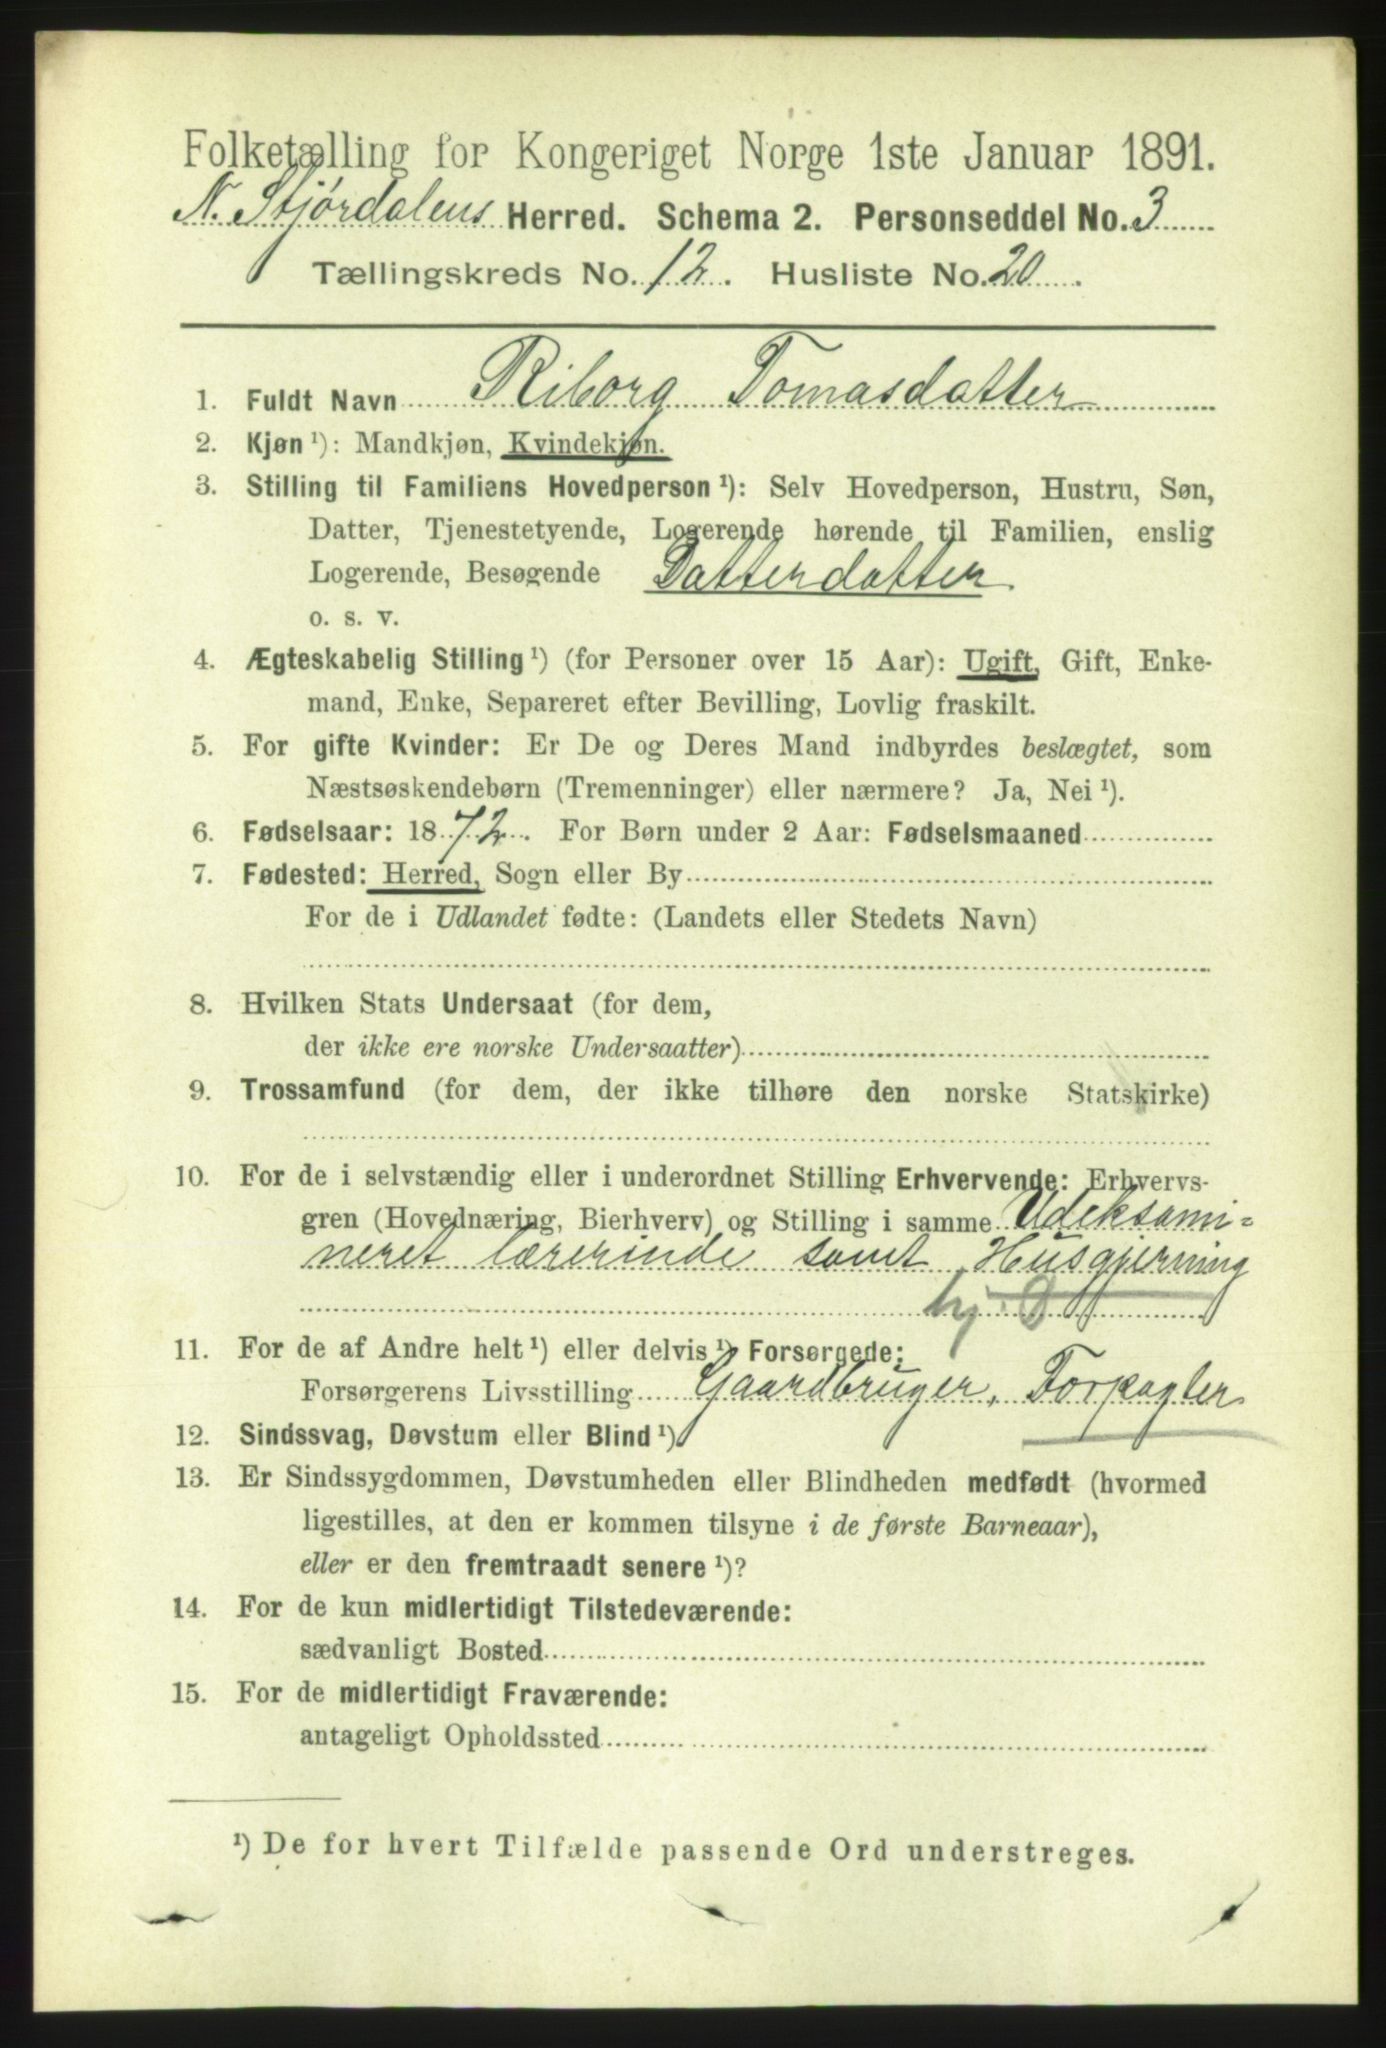 Folketælling for Kongeriget Norge 1ste Januar 1891.
N. Stjørdalens Herred. Schema 2. Personseddel No. 3
Tællingskreds No. 12. Husliste No. 20.
1. Fuldt Navn Riborg Tomasdatter
2. Kjøn ¹): Mandkjøn, Kvindekjøn.
3. Stilling til Familiens Hovedperson ¹): Selv Hovedperson, Hustru, Søn,
Datter, Tjenestetyende, Logerende hørende til Familien, enslig
Logerende, Besøgende Datterdatter
o. s. v.
4. Ægteskabelig Stilling ¹) (for Personer over 15 Aar): Ugift, Gift, Enke-
mand, Enke, Separeret efter Bevilling, Lovlig fraskilt.
5. For gifte Kvinder: Er De og Deres Mand indbyrdes beslægtet, som
Næstsøskendebørn (Tremenninger) eller nærmere? Ja, Nei ¹).
6. Fødselsaar: 1872. For Børn under 2 Aar: Fødselsmaaned
7. Fødested: Herred, Sogn eller By
For de i Udlandet fødte: (Landets eller Stedets Navn)
8. Hvilken Stats Undersaat (for dem,
der ikke ere norske Undersaatter)
9. Trossamfund (for dem, der ikke tilhøre den norske Statskirke)
10. For de i selvstændig eller i underordnet Stilling Erhvervende: Erhvervs-
gren (Hovednæring, Bierhverv) og Stilling i samme Udeksami=
neret lærerinde samt Husgjerning
11. For de af Andre helt ¹) eller delvis ¹) Forsørgede:
Forsørgerens Livsstilling Gaardbruger, Forpagter
12. Sindssvag, Døvstum eller Blind ¹).
13. Er Sindssygdommen, Døvstumheden eller Blindheden medfødt (hvormed
ligestilles, at den er kommen tilsyne i de første Barneaar),
eller er den fremtraadt senere ¹)?
14. For de kun midlertidigt Tilstedeværende:
sædvanligt Bosted
15. For de midlertidigt Fraværende:
antageligt Opholdssted
¹) De for hvert Tilfælde passende Ord understreges.